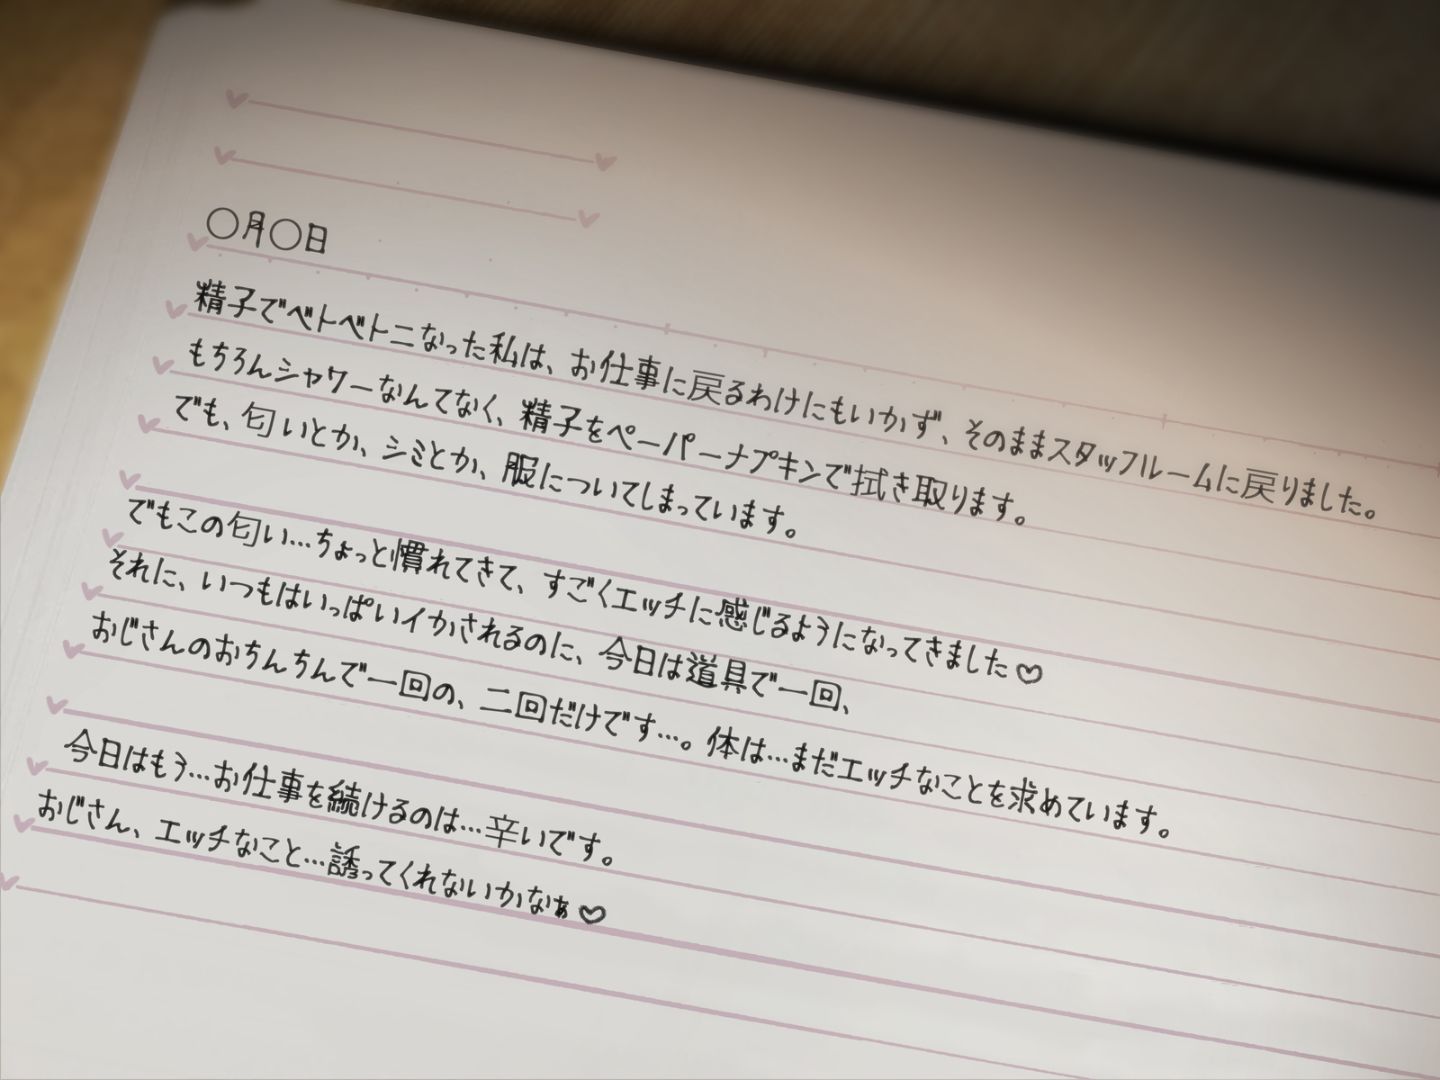 〇月〇日
精子でベトベトになった私は、お仕事に戻るわけにもいかず、そのままスタッフルームに戻りました。
もちろんシャワーなんてなく、精子をペーパーナプキンで拭き取ります。
でも、匂いとか、シミとか、服についてしまっています。
でもこの匂い…ちょっと慣れてきて、すごくエッチに感じるようになってきました♡
それに、いつもはいっぱいイかされるのに、今日は道具で一回、
おじさんのおちんちんで一回の、二回だけです…。体は…まだエッチなことを求めています。
今日はもう…お仕事を続けるのは…辛いです。
おじさん、エッチなこと…誘ってくれないかなぁ♡